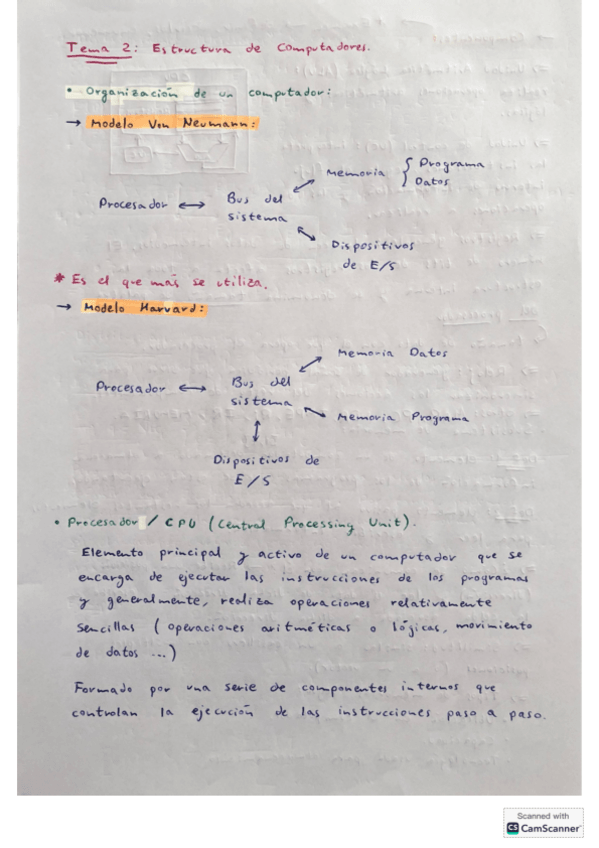 Tema 2: Estructura de Computadores.
• Organización de un computador:
→ Modelo Von Neumann:
Memoria { Programa
Datos
Procesador ↔ Bus del
sistema
Dispositivos
de E/S
* Es el que más se utiliza.
→ Modelo Harvard:
Memoria Datos
Procesador ↔ Bus del
sistema
Memoria Programa
Dispositivos de
E/S
• Procesador / CPU (Central Processing Unit).
Elemento principal y activo de un computador que se
encarga de ejecutar las instrucciones de los programas
y generalmente, realiza operaciones relativamente
sencillas (operaciones aritméticas o lógicas, movimiento
de datos ...)
Formado por una serie de componentes internos que
controlan la ejecución de las instrucciones paso a paso.
Scanned with
CS CamScanner